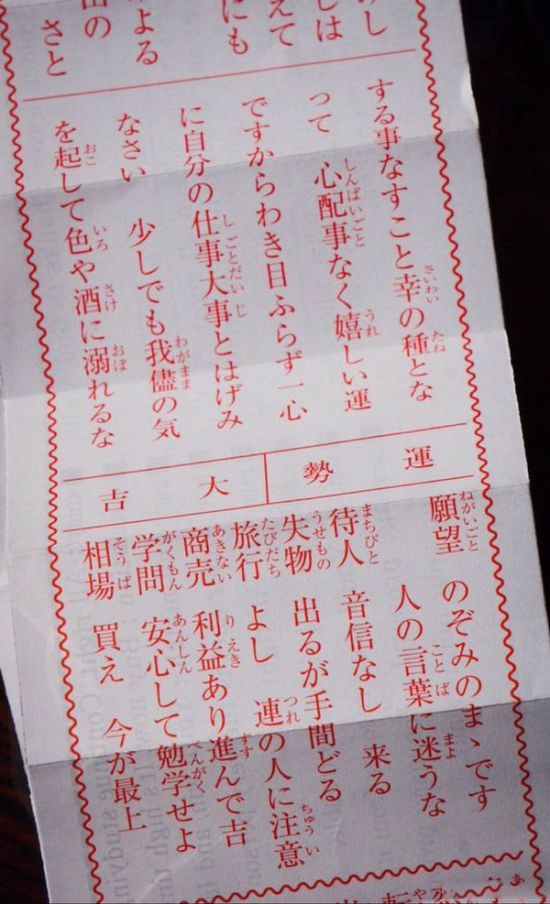 みし
しは
えて
にも
よる
の
さと
する事なすこと幸の種とな
って 心配事なく嬉しい運
ですからわき目ふらず一心
に自分の仕事大事とはげみ
なさい 少しでも我儘の気
を起して色や酒に溺れるな
運勢
大吉
願望 のぞみのまゝです
人の言葉に迷うな
待人 音信なし 来る
失物 出るが手間どる
旅行 よし 連の人に注意
商売 利益あり進んで吉
学問 安心して勉学せよ
相場 買え 今が最上